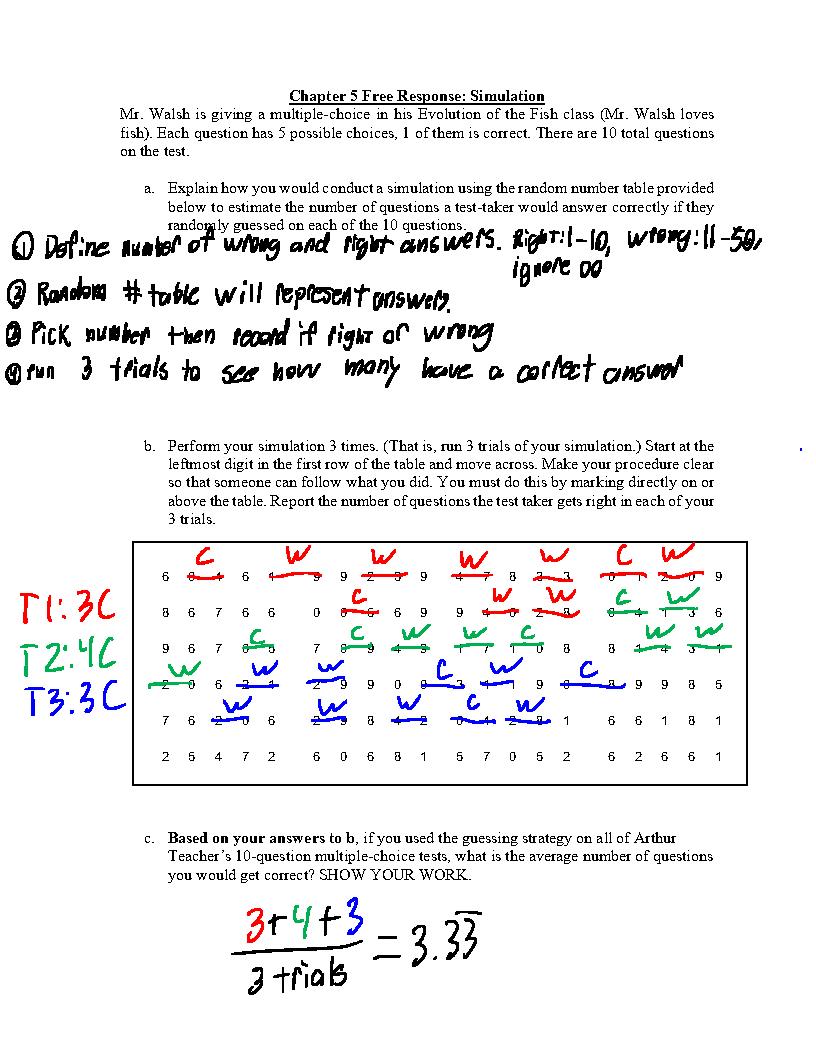 Chapter 5 Free Response: Simulation
Mr. Walsh is giving a multiple-choice in his Evolution of the Fish class (Mr. Walsh loves
fish). Each question has 5 possible choices, 1 of them is correct. There are 10 total questions
on the test.
a. Explain how you would conduct a simulation using the random number table provided
below to estimate the number of questions a test-taker would answer correctly if they
randomly guessed on each of the 10 questions.
① Define number of wrong and right answers. Right:1-10, wrong:11-50,
ignore 00
② Random # table will represent answers.
③ Pick number then record if right or wrong
④ run 3 trials to see how many have a correct answer
b. Perform your simulation 3 times. (That is, run 3 trials of your simulation.) Start at the
leftmost digit in the first row of the table and move across. Make your procedure clear
so that someone can follow what you did. You must do this by marking directly on or
above the table. Report the number of questions the test taker gets right in each of your
3 trials.
C W W W W C W
6 0 4 6 1 9 9 2 3 9 4 7 8 3 3 0 1 2 0 9
T1: 3C
C W W C W
8 6 7 6 6 0 0 6 6 9 9 4 0 2 8 0 4 1 3 6
T2: 4C
C C W W C W W
9 6 7 0 5 7 8 9 4 9 1 7 1 0 8 8 1 4 3 1
T3: 3C
W W W C W C
2 0 6 2 1 2 9 9 0 0 3 4 1 9 0 8 9 9 8 5
W W W C W
7 6 2 0 6 2 9 8 4 2 0 4 2 8 1 6 6 1 8 1
2 5 4 7 2 6 0 6 8 1 5 7 0 5 2 6 2 6 6 1
c. Based on your answers to b, if you used the guessing strategy on all of Arthur
Teacher's 10-question multiple-choice tests, what is the average number of questions
you would get correct? SHOW YOUR WORK.
3+4+3
3 trials
= 3.33